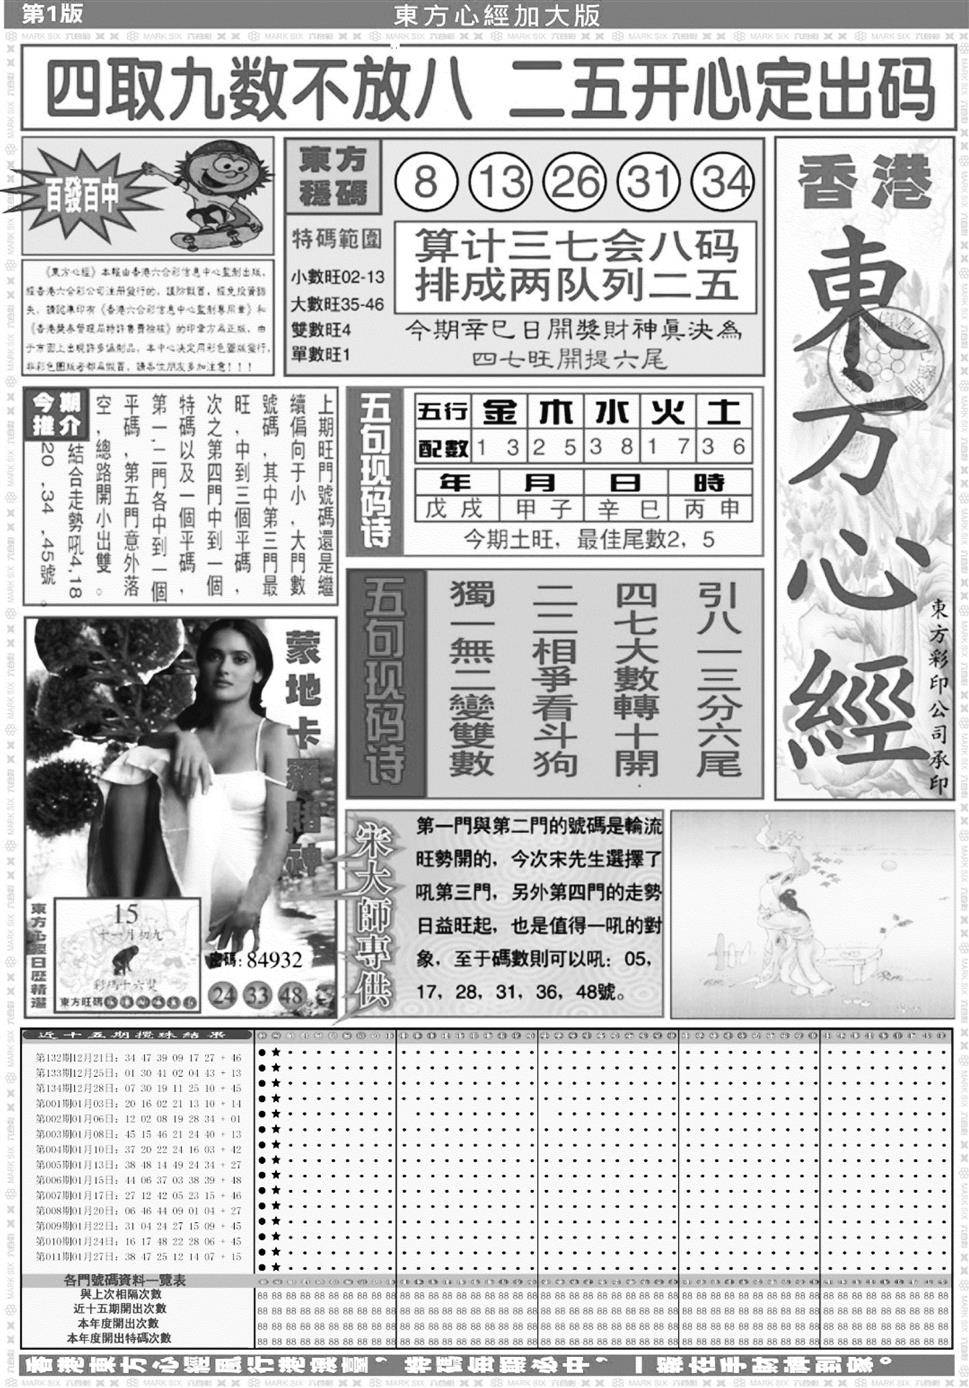 第1版
東方心經加大版
四取九数不放八 二五开心定出码
百發百中
《東方心經》本報由香港六合彩信息中心監制出版，
經香港六合彩公司注册發行的，謹防假冒，經免投資損
失，請認準印有《香港六合彩信息中心監制專用章》和
《香港獎券管理局特許書費檢核》的印章方爲正版，由
于市面上出現許多僞制品，本中心決定用彩色圖版發行，
非彩色圖版者都爲假冒，請各位朋友多加注意！！！
東方
穩碼
8 13 26 31 34
特碼範圍
小數旺02-13
大數旺35-46
雙數旺4
單數旺1
算计三七会八码
排成两队列二五
今期辛巳日開獎財神眞決為
四七旺開提六尾
香港
東方心經
東方彩印公司承印
今期
推介
上期旺門號碼還是繼
續偏向于小，大門數
號碼，其中第三門最
旺，中到三個平碼，
次之第四門中到一個
特碼以及一個平碼，
第一，二門各中到一個
平碼，第五門意外落
空，總路開小出雙。
結合走勢吼4,18
20 ,34 ,45號。
五句现码诗
五行 金 木 水 火 土
配數 1 3 2 5 3 8 1 7 3 6
年 月 日 時
戊戌 甲子 辛巳 丙申
今期土旺，最佳尾數2，5
五句现码诗
引八一三分六尾
四七大數轉十開
二二相爭看斗狗
獨一無二變雙數
蒙地卡羅賭神
東方心經日歷精選
15
十一月初九
彩碼十六雙
東方旺碼
密碼：84932
24 33 48
宋大師專供
第一門與第二門的號碼是輪流
旺勢開的，今次宋先生選擇了
吼第三門，另外第四門的走勢
日益旺起，也是值得一吼的對
象，至于碼數則可以吼：05，
17，28，31，36，48號。
近十五期攪珠結果
第132期12月21日：34 47 39 09 17 27 + 46
第133期12月25日：01 30 41 02 04 43 + 13
第134期12月28日：07 30 19 11 25 10 + 45
第001期01月03日：20 16 02 21 13 10 + 14
第002期01月06日：12 02 08 19 28 34 + 01
第003期01月08日：45 15 46 21 24 40 + 13
第004期01月10日：37 20 22 24 16 03 + 42
第005期01月13日：38 48 14 49 24 34 + 27
第006期01月15日：44 06 37 03 38 39 + 48
第007期01月17日：27 12 42 05 23 15 + 46
第008期01月20日：06 46 44 09 01 04 + 27
第009期01月22日：31 04 24 27 15 09 + 45
第010期01月24日：16 17 48 22 28 06 + 45
第011期01月27日：38 47 25 12 14 07 + 15
各門號碼資料一覽表
與上次相隔次數
近十五期開出次數
本年度開出次數
本年度開出特碼次數
香港東方心經風行港澳臺，特碼每期必中，一版在手財神到家。